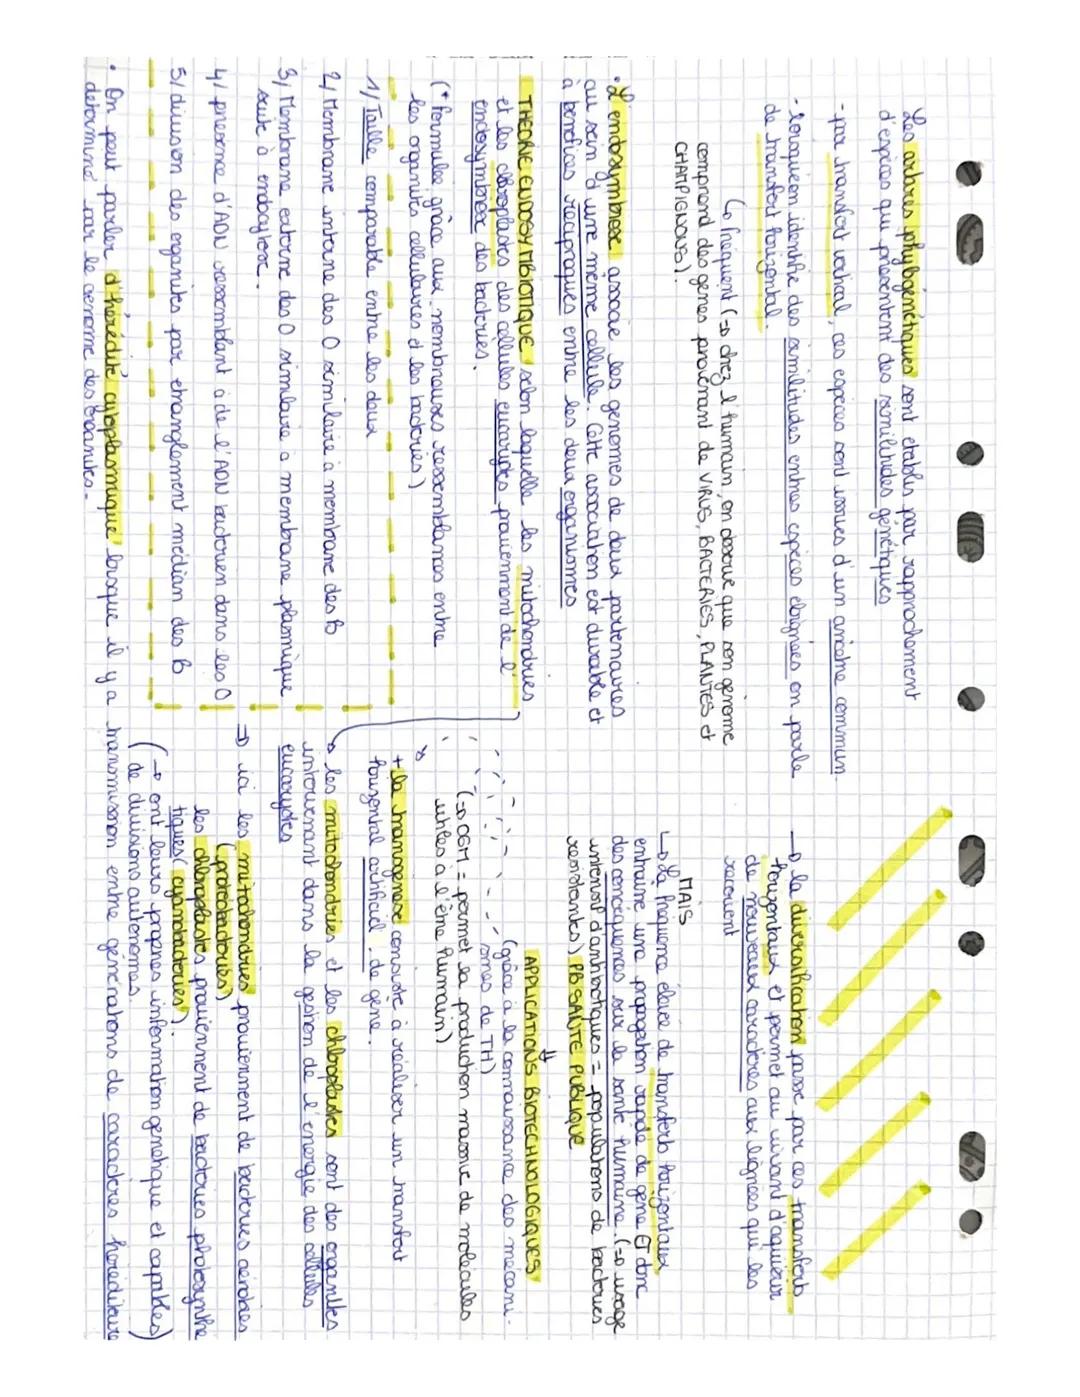 Les arbres phylogénétiques sont établis par rapprochement
d'espèces qui présentent des similitudes génétiques
- par transfert vertical, ces espèces sont issues d'un ancetre commun.
- lorsqu'on identifie des similitudes entres espèces eloignées on parle
de transfert horizontal.
↳ fréquent (=> chez l'humain, on observe que son génome
comprend des genes provenant de VIRUS, BACTERIES, PLANTES et
CHAMPIGNONS).
• L'endosymbiose associe les genomes de deux partenaires
au sein d'une meme cellule. Cette association est durable et
à benefices reciproques entre les deux organismes
THEORIE ENDOSYMBIOTIQUE selon laquelle les mitochondries
et les chloroplastes des cellules eucaryotes proviennent de l'
endosymbiose des bacteries.
(* formulée grâce aux nombreuses ressemblances entre
les organites cellulaires et les bactéries)
1/ Taille comparable entre les deux
2/ Membrane interne des O similaire à membrane des B
3/ Membrane externe des O similaire a membrane plasmique
suite à endocytose.
4/ presence d'ADN ressemblant à de l'ADN bacterien dans les O
5/ division des organites par etranglement médian des B
• On peut parler d'hérédité cytoplasmique lorsque il y a transmission entre générations de caractères héréditaire
determiné par le genome des organites.
→ la diversification passe par ces transferts
horizontaux et permet au vivant d'aquérir
de nouveaux caractères aux lignées qui les
recoivent
MAIS
↳ La frequence élevée de transferts horizontaux
entraine une propagation rapide de gène ET donc
des conséquences sur la santé humaine. (=> usage
intensif d'antibiotiques = populations de bacteries
resistantes) PB SANTE PUBLIQUE
⇓
APPLICATIONS BIOTECHNOLOGIQUES
(grâce à la connaissance des mecani-
smes de TH)
(=> OGM = permet la production massive de molécules
utiles à l'être humain)
+ la transgenese consiste à réaliser un transfert
horizontal artificiel de gène.
↳ les mitochondries et les chloroplastes sont des organites
intervenant dans la gestion de l'énergie des cellules
eucaryotes
=> ici les mitochondries proviennent de bacteries aérobies
(proteobacteries)
les chloroplastes proviennent de bacteries photosynthe
tiques (cyanobacteries).
(→ ont leurs propres information genetique et capables)
(de divisions autonomes.